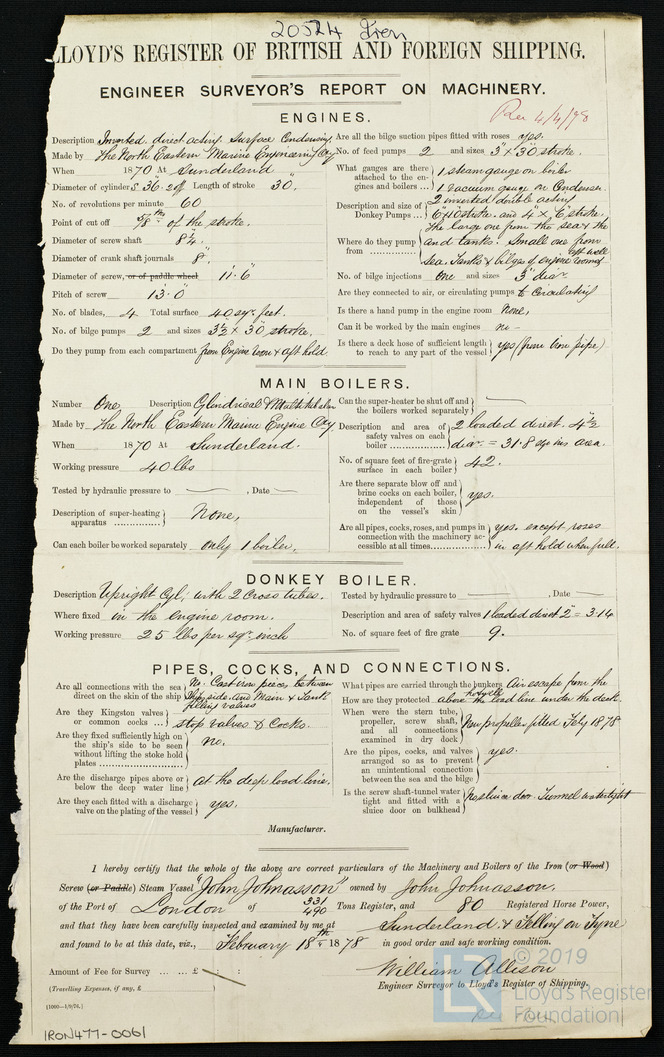 20524 Iron
LLOYD'S REGISTER OF BRITISH AND FOREIGN SHIPPING.
ENGINEER SURVEYOR'S REPORT ON MACHINERY.
Rec 4/4/78
ENGINES.
Description Inverted direct acting Surface Condensing
Made by The North Eastern Marine Engineering Coy
When 1870 At Sunderland
Diameter of cylinders 36. Length of stroke 30"
No. of revolutions per minute 60
Point of cut off 5/8ths of the stroke.
Diameter of screw shaft 8 1/4.
Diameter of crank shaft journals 8"
Diameter of screw, or of paddle wheel 11'. 6"
Pitch of screw 13'. 0"
No. of blades, 4 Total surface 40 sqr feet.
No. of bilge pumps 2 and sizes 3 1/2 x 30" stroke.
Do they pump from each compartment from Engine room & aft hold
Are all the bilge suction pipes fitted with roses yes.
No. of feed pumps 2 and sizes 3" x 30" stroke.
What gauges are there attached to the engines and boilers ... 1 steam gauge on boiler
1 vacuum gauge on Condenser
Description and size of Donkey Pumps ... 2 inverted double acting
6" x 10" stroke. and 4" x 6" stroke.
Where do they pump from ............... The large one from the sea & the
and tanks. Small one from
sea, Tanks & bilges of engine room & aft well
No. of bilge injections One and sizes 3" diar.
Are they connected to air, or circulating pumps to Circulating
Is there a hand pump in the engine room None,
Can it be worked by the main engines no -
Is there a deck hose of sufficient length to reach to any part of the vessel yes (from iron pipe)
MAIN BOILERS.
Number One Description Cylindrical & Multitubular
Made by The North Eastern Marine Engine Coy
When 1870 At Sunderland.
Working pressure 40 lbs
Tested by hydraulic pressure to — , Date —
Description of super-heating apparatus .............. None,
Can each boiler be worked separately only 1 boiler.
Can the super-heater be shut off and the boilers worked separately —
Description and area of safety valves on each boiler ............... 2 loaded direct. 4 1/2
diar. = 31.8 sqr ins area.
No. of square feet of fire-grate surface in each boiler 42.
Are there separate blow off and brine cocks on each boiler, independent of those on the vessel's skin yes.
Are all pipes, cocks, roses, and pumps in connection with the machinery accessible at all times.............. yes. except roses
in aft hold when full.
DONKEY BOILER.
Description Upright Cyl; with 2 Cross tubes.
Where fixed in the engine room.
Working pressure 25 lbs per sqr inch
Tested by hydraulic pressure to — , Date —
Description and area of safety valves 1 loaded direct 2" = 3.14
No. of square feet of fire grate 9.
PIPES, COCKS, AND CONNECTIONS.
Are all connections with the sea direct on the skin of the ship No. Cast iron pieces between
Ship side. and Main & Tank
filling valves
Are they Kingston valves or common cocks ... stop valves & Cocks.
Are they fixed sufficiently high on the ship's side to be seen without lifting the stoke hold plates ........................ no.
Are the discharge pipes above or below the deep water line at the deep load line.
Are they each fitted with a discharge valve on the plating of the vessel yes.
What pipes are carried through the bunkers Air escape from the
How are they protected hotwell above the load line under the deck.
When were the stern tube, propeller, screw shaft, and all connections examined in dry dock New propeller fitted Feby 1878
Are the pipes, cocks, and valves arranged so as to prevent an unintentional connection between the sea and the bilge yes.
Is the screw shaft-tunnel water tight and fitted with a sluice door on bulkhead No sluice door. Tunnel watertight
Manufacturer.
I hereby certify that the whole of the above are correct particulars of the Machinery and Boilers of the Iron (or Wood)
Screw (or Paddle) Steam Vessel "John Johnasson" owned by John Johnasson.
of the Port of London of 331/490 Tons Register, and 80 Registered Horse Power,
and that they have been carefully inspected and examined by me at Sunderland & Felling on Tyne
and found to be at this date, viz., February 18th 1878 in good order and safe working condition.
Amount of Fee for Survey ... ... £ : :
(Travelling Expenses, if any, £
William Allison
Engineer Surveyor to Lloyd's Register of Shipping.
(1000—1/9/76.)
IRON477-0061
LR
© 2019
Lloyd's Register
Foundation